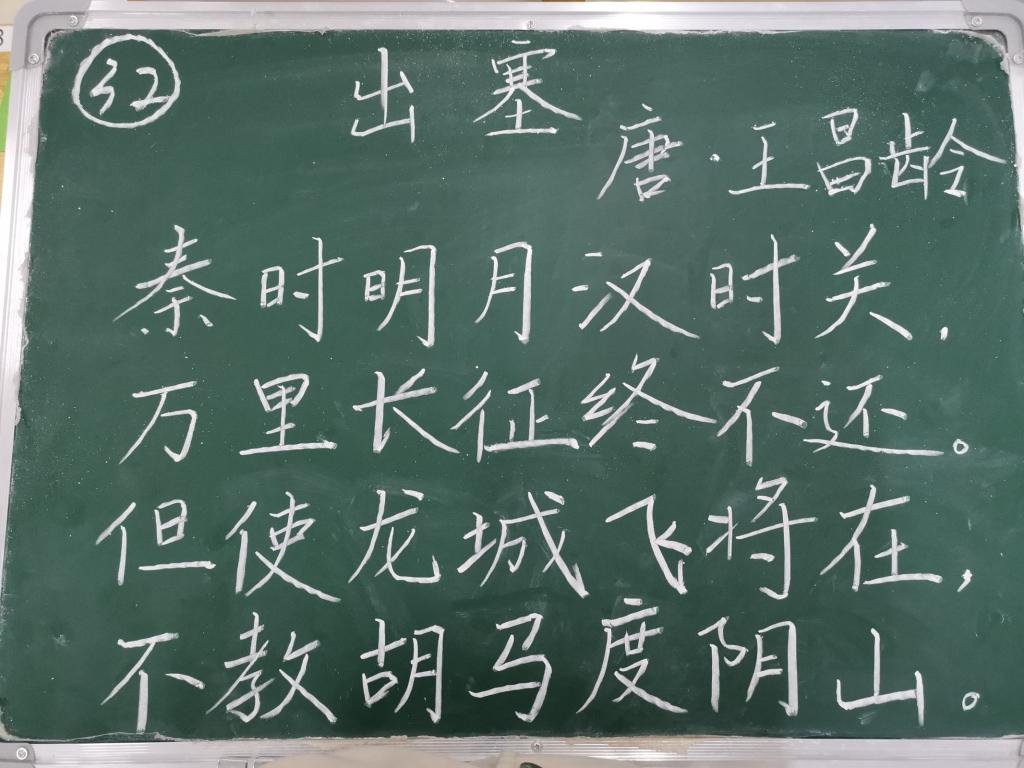 32
出塞
唐·王昌龄
秦时明月汉时关，
万里长征终不还。
但使龙城飞将在，
不教胡马度阴山。